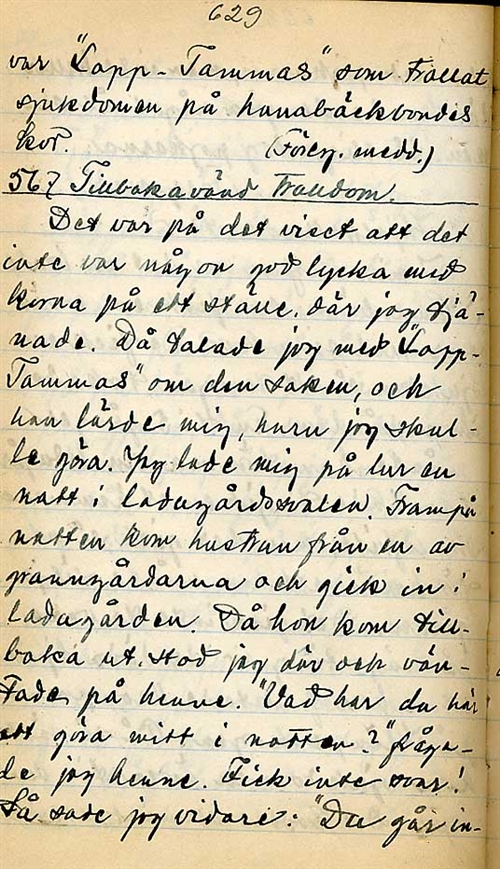 629
var "Lapp-Tammas" som trollat
sjukdomen på hanabäckbondes
kor. (Föreg. medd.)
567 Tillbakavänd trolldom.
Det var på det viset att det
inte var någon god lycka med
korna på ett ställe, där jag tjä-
nade. Då talade jag med "Lapp-
Tammas" om den saken, och
han lärde mig, huru jag skul-
le göra. Jag lade mig på lur en
natt i ladugårdssvalen. Frampå
natten kom hustrun från en av
granngårdarna och gick in i
ladugården. Då hon kom till-
baka ut, stod jag där och vän-
tade på henne. "Vad har du här
att göra mitt i natten?" fråga-
de jag henne. Fick inte svar!
Så sade jag vidare: "Du går in-